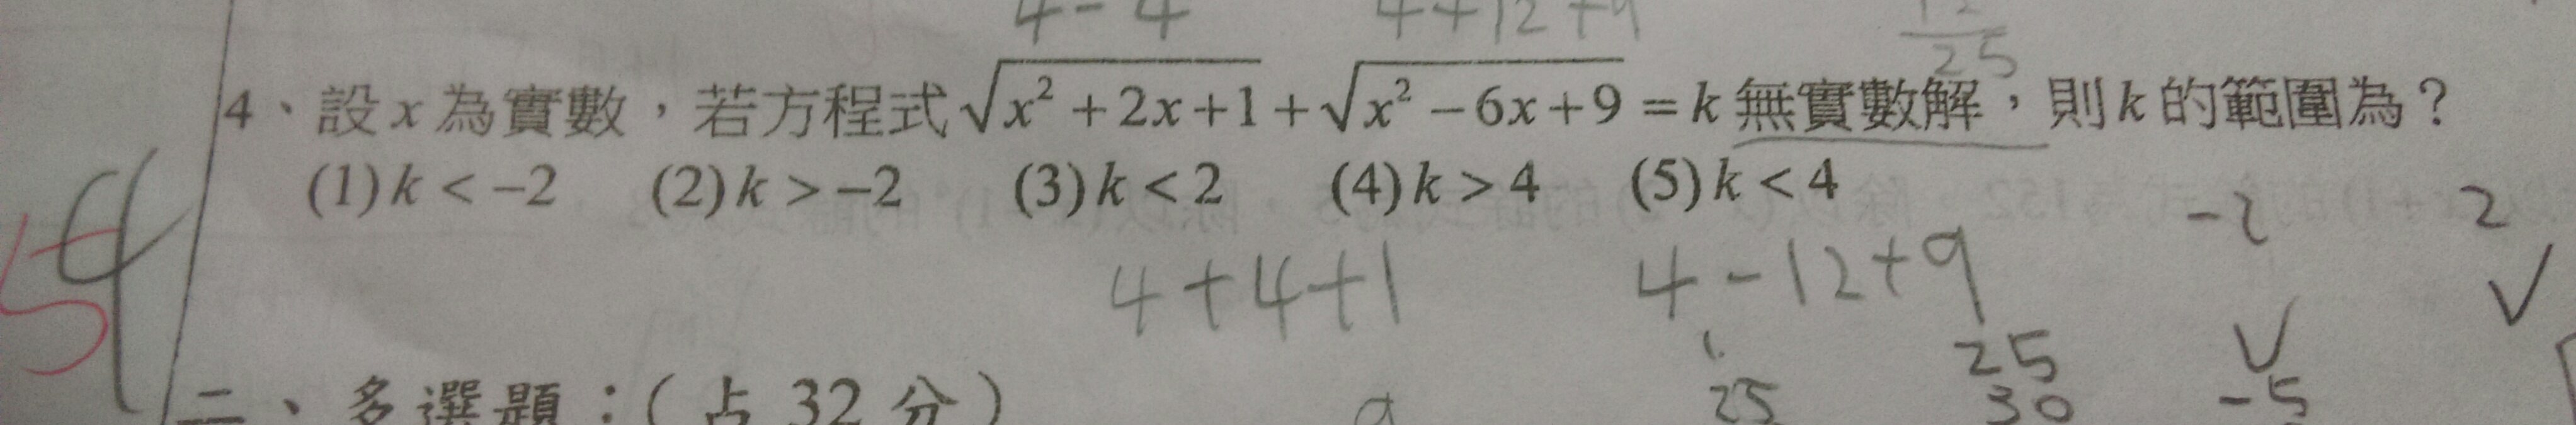 4-4 4+12+9 12/25
4、設x為實數，若方程式√(x²+2x+1)+√(x²-6x+9)=k無實數解，則k的範圍為？
(1)k<-2 (2)k>-2 (3)k<2 (4)k>4 (5)k<4
4 5
4+4+1 4-12+9 -2 2
25
二、多選題：(占32分) 9 25 30 -5